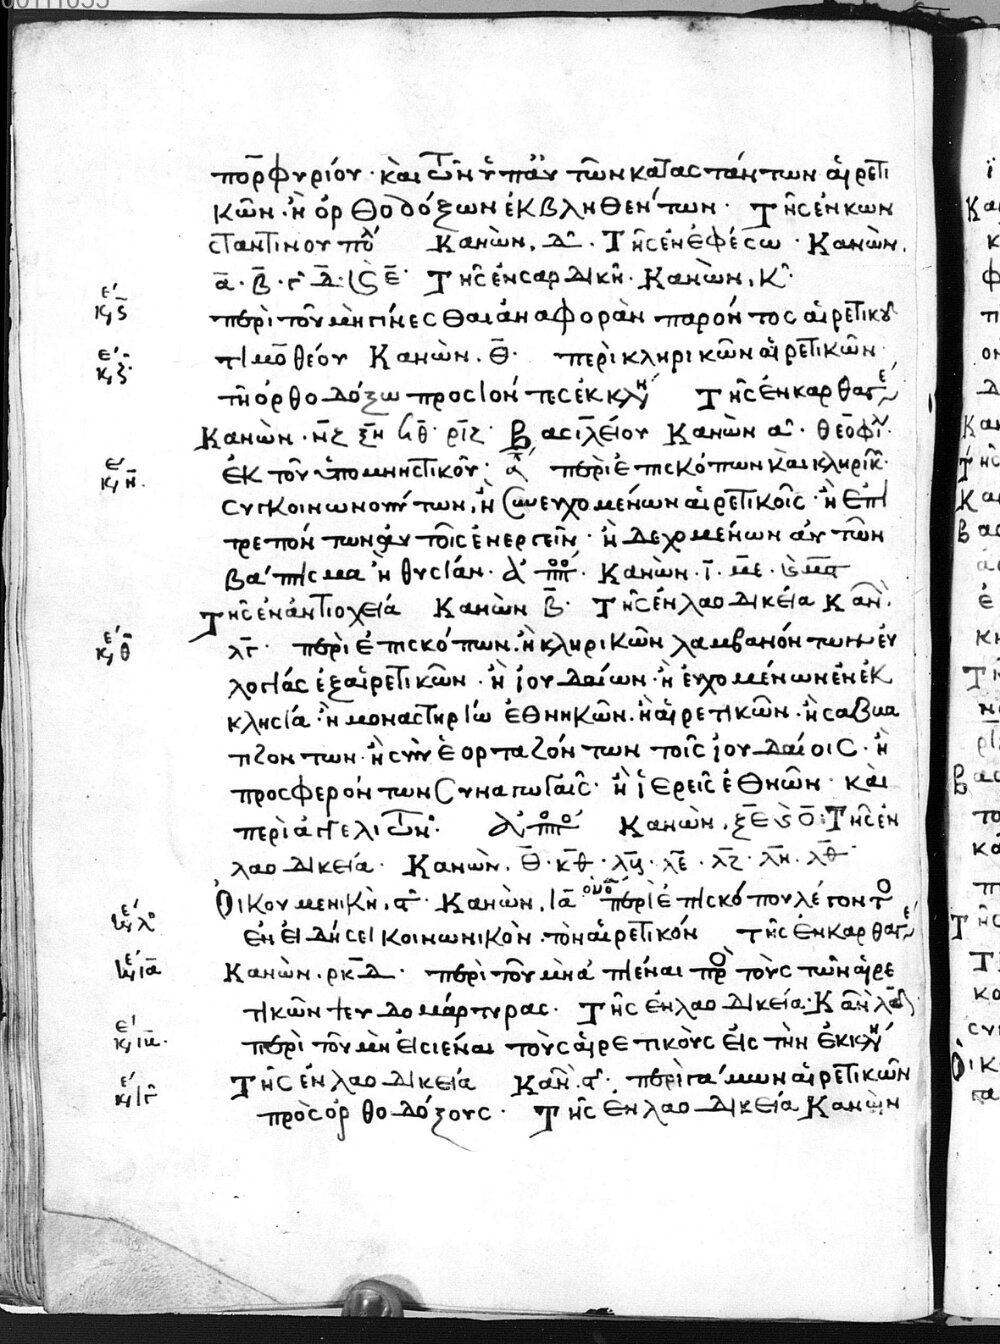 πορφυρίου· καὶ τῶν ὑπ' αὐτῶν καταστάντων αἱρετι
κῶν· ἢ ὀρθοδόξων ἐκβληθέντων· Τῆς ἐν κων
σταντινουπό Κανὼν, δ. Τῆς ἐν ἐφέσω· Κανὼν.
ᾱ· β̄· γ̄ δ̄· ε̄· Τῆς ἐν σαρδικῆ· Κανὼν, κ·
ε΄ κε ϛ̄ περὶ τοῦ μὴ γίνεσθαι ἀναφορὰν παρόντος αἱρετικοῦ
τιμοθέου Κανὼν. θ̄· περὶ κληρικῶν αἱρετικῶν
ε΄ κε ζ̄ τῆ ὀρθοδόξω προσιόντες ἐκκλη Τῆς ἐν καρθαγε
Κανὼν· ν̄ζ ξ̄η ϙ̄θ· ρῑζ· Βασιλείου Κανὼν α· θεοφι
ἐκ τοῦ ὑπομνηστικοῦ· ᾱ
ε΄ κε η̄. περὶ ἐπισκόπων καὶ κληρικ
συγκοινωνούντων, ἢ συνευχομένων αἱρετικοῖς· ἢ ἐπι
τρεπόντων αὐτοῖς ἐνεργεῖν· ἢ δεχομένων αὐτῶν
βάπτισμα ἢ θυσίαν· Κανὼν· ῑ. μ̄ε·
Τῆς ἐν ἀντιοχεία Κανὼν β̄· Τῆς ἐν λαοδικεία Καν.
ε΄ κε θ̄ λγ· περὶ ἐπισκόπων. ἢ κληρικῶν λαμβανόντων εὐ
λογίας ἐξ αἱρετικῶν· ἢ ἰουδαίων· ἢ εὐχομένων ἐν ἐκ
κλησία· ἢ μοναστηρίω ἐθνηκῶν. ἢ αἱρετικῶν· ἢ σαββα
τιζοντων· ἢ συνεορταζόντων τοῖς ἰουδαίοις· ἢ
προσφερόντων συναγωγαῖς· ἢ ἱερεῖς ἐθνῶν· καὶ
περὶ ἀγγελιτῶν· Κανὼν. ξ̄ε ο̄: Τῆς ἐν
λαοδικεία· Κανὼν. θ̄· κ̄θ· λ̄ε· λ̄ζ· λ̄η. λ̄θ·
Οἰκουμενικὴ, ϛ· Κανὼν, ῑᾱ
ε΄ περὶ ἐπισκόπου λέγοντ
ἐν εἰδήσει κοινωνικὸν τὸν αἱρετικόν τῆς ἐν καρθαγε
ε΄ κε ῑᾱ Κανὼν. ρκ̄δ· περὶ τοῦ μὴ ἀπιέναι πρ τοὺς τῶν αἱρε
τικῶν ψευδομάρτυρας· Τῆς ἐν λαοδικεία· Καν λδ
ε΄ κε ῑβ. περὶ τοῦ μὴ εἰσιέναι τοὺς αἱρετικοὺς εἰς τὴν ἐκκλη
Τῆς ἐν λαοδικεία Καν. ϛ·
ε΄ κε ῑγ περὶ γάμων αἱρετικῶν
πρὸς ὀρθοδόξους· Τῆς ἐν λαοδικεία Κανὼν